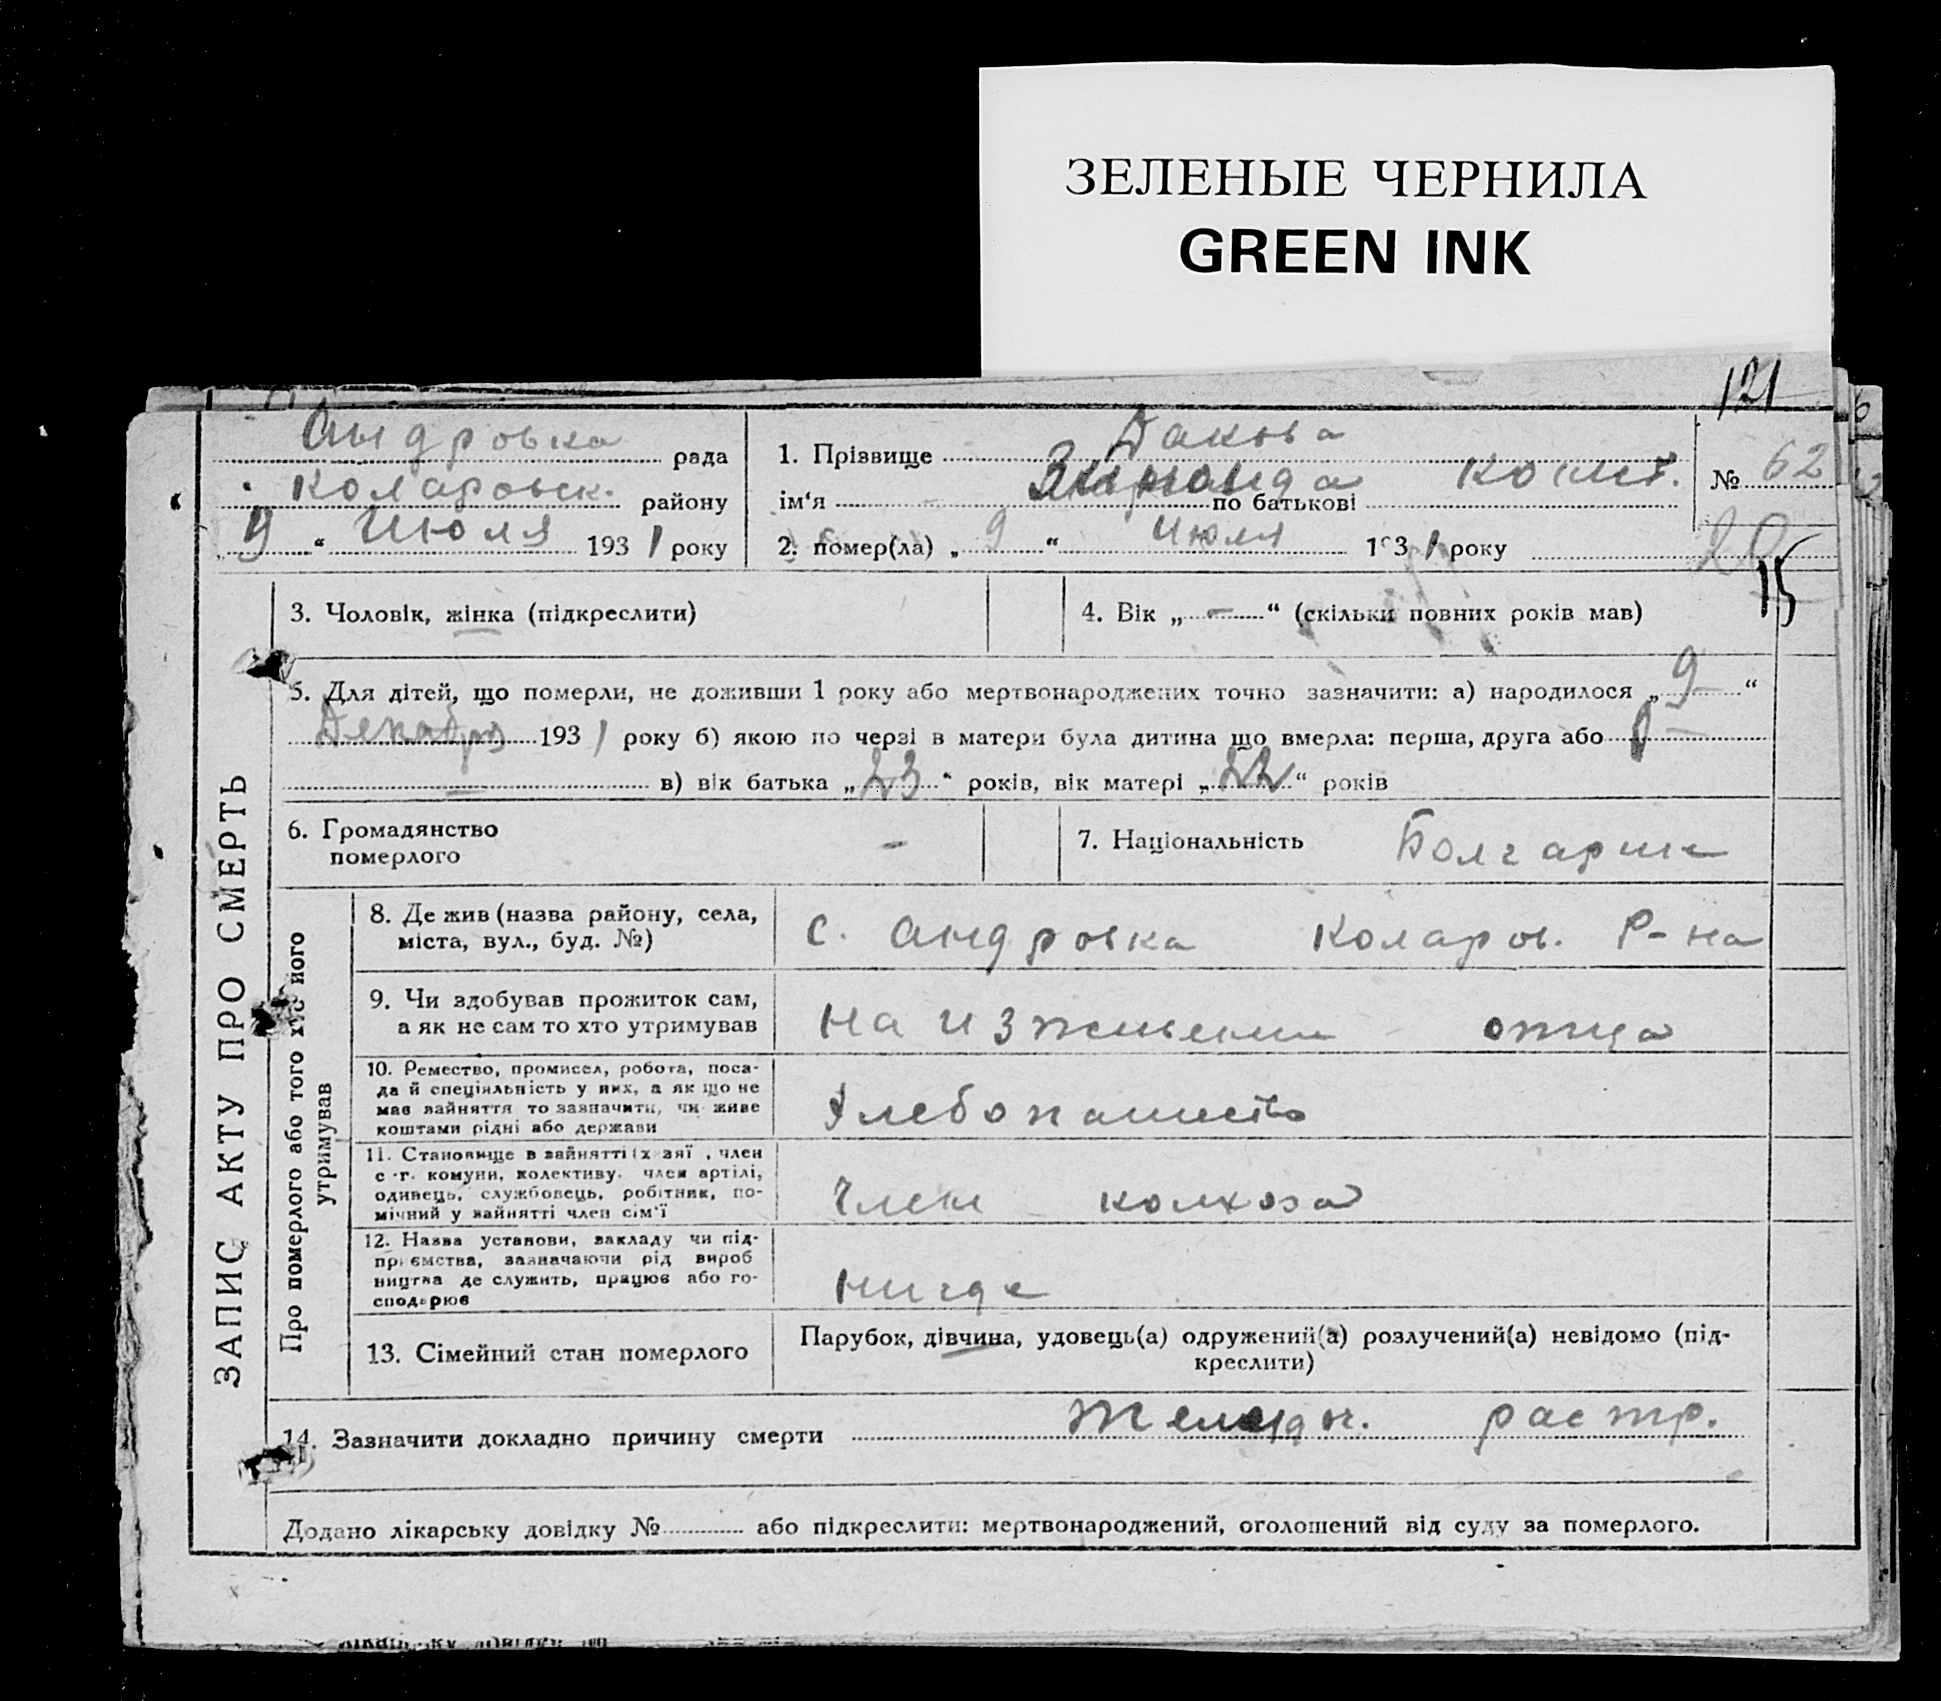 ЗЕЛЕНЫЕ ЧЕРНИЛА
GREEN INK
121
Андровка рада
Коларовск. району
„9“ Июля 1931 року
1. Прізвище Дакова
ім‘я по батькові Конст.
2. помер(ла) „9“ Июля 1931 року
№ 62
20
15
3. Чоловік, жінка (підкреслити)
4. Вік „-“ (скільки повних років мав)
5. Для дітей, що померли, не доживши 1 року або мертвонароджених точно зазначити: а) народилося „9“
Декабря 1931 року б) якою по черзі в матери була дитина що вмерла: перша, друга або
— в) вік батька „23“ років, вік матері „22“ років
6. Громадянство
померлого -
7. Національність Болгарин
ЗАПИС АКТУ ПРО СМЕРТЬ
Про померлого або того хто його
утримував
8. Де жив (назва району, села,
міста, вул., буд. №)
с. Андровка Коларов. Р-на
9. Чи здобував прожиток сам,
а як не сам то хто утримував
На отца
10. Ремество, промисел, робота, поса-
да й спеціяльність у них, а як що не
має зайняття то зазначити, чи живе
коштами рідні або держави
Хлебопашество
11. Становище в зайнятті, член
с.-г. комуни, колективу, член артілі,
одинець, службовець, робітник, по-
мічний у зайнятті член сім‘ї
Член колхоза
12. Назва установи, закладу чи під-
приємства, зазначаючи рід вироб
ництва де служить, працює або го-
сподарює
нигде
13. Сімейний стан померлого
Парубок, дівчина, удовець(а) одружений(а) розлучений(а) невідомо (під-
креслити)
14. Зазначити докладно причину смерти Желудоч. растр.
Додано лікарську довідку № або підкреслити: мертвонароджений, оголошений від суду за померлого.